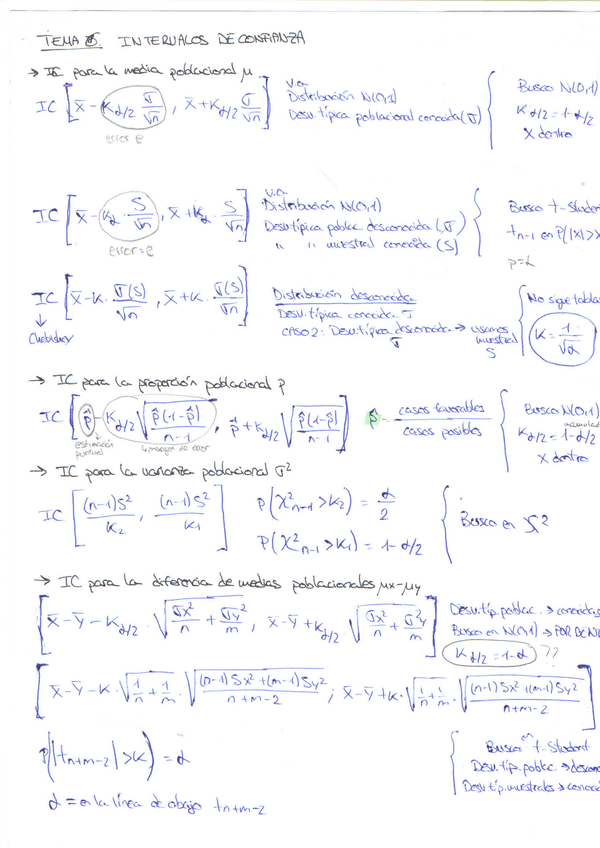 TEMA 6. INTERVALOS DE CONFIANZA
→ IC para la media poblacional μ
IC [x̄ - K_{α/2} σ/√n , x̄ + K_{α/2} σ/√n]
error e
v.a
Distribución N(0,1)
Desv. típica poblacional conocida (σ)
Busco N(0,1)
K_{α/2} = 1-α/2
X dentro
IC [x̄ - K_α · S/√n , x̄ + K_α · S/√n]
error = e
v.a
Distribución N(0,1)
Desv. típica poblac. desconocida (σ)
" " muestral conocida (S)
Busco t-Student
t_{n-1} en P(|X|>
p=α
IC [x̄ - K · σ(S)/√n , x̄ + K · σ(S)/√n]
↓
Chebichev
Distribución desconocida
Desv. típica conocida σ
CASO 2: Desv. típica desconocida → usamos muestral S
σ
No sigue tabla
K = 1/√α
→ IC para la proporción poblacional p
IC [p̂ - K_{α/2} √(p̂(1-p̂)/(n-1)) , p̂ + K_{α/2} √(p̂(1-p̂)/(n-1))]
estimación puntual
↳ margen de error
p̂ = casos favorables / casos posibles
Busco N(0,1)
acumulada
K_{α/2} = 1-α/2
X dentro
→ IC para la varianza poblacional σ²
IC [(n-1)S²/K₂ , (n-1)S²/K₁]
P(χ²_{n-1} > K₂) = α/2
P(χ²_{n-1} > K₁) = 1-α/2
Busco en χ²
→ IC para la diferencia de medias poblacionales, μx-μy
[x̄ - ȳ - K_{α/2} · √(σx²/n + σy²/m) , x̄ - ȳ + K_{α/2} · √(σx²/n + σ²y/m)]
Desv. típ. poblac. → conocidas
Busco en N(0,1) →
K_{α/2} = 1-α ??
[x̄ - ȳ - K · √(1/n + 1/m) · √((n-1)Sx² + (m-1)Sy² / n+m-2) ; x̄ - ȳ + K · √(1/n + 1/m) · √((n-1)Sx² + (m-1)Sy² / n+m-2)]
P(|t_{n+m-2}| > K) = α
α = en la línea de abajo t_{n+m-2}
Busco en t-Student
Desv. típ. poblac. → descono
Desv. típ. muestrales → conoci